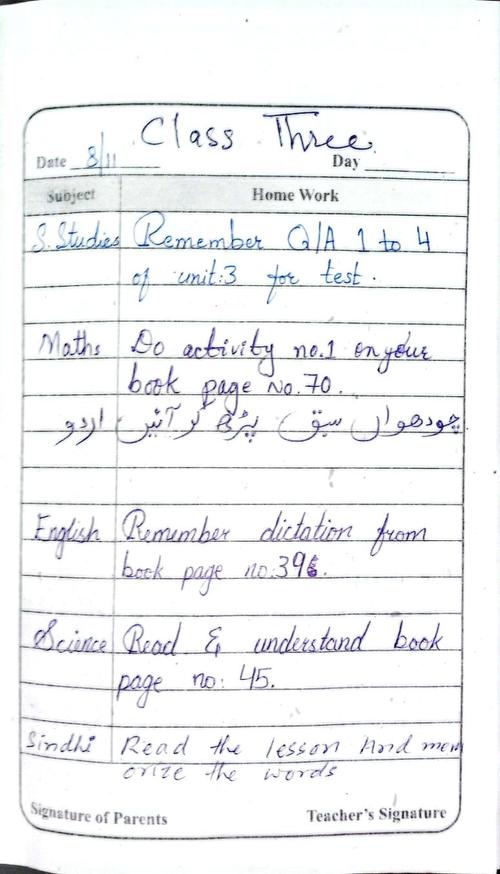 Class Three
Date 8/11 Day
Subject Home Work
S. Studies Remember Q/A 1 to 4
of unit:3 for test.
Maths Do activity no.1 on your
book page No.70.
اردو چودھواں سبق پڑھ کر آئیں
English Remember dictation from
book page no:39
Science Read & understand book
page no: 45.
Sindhi Read the lesson And mem
orize the words
Signature of Parents Teacher's Signature